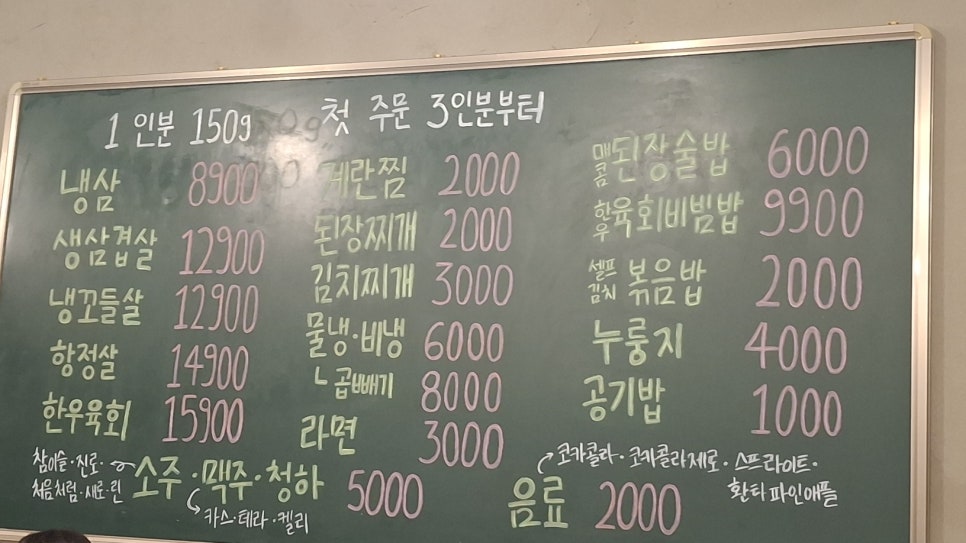 1 인분 150g 첫 주문 3인분부터
냉삼 8900
생삼겹살 12900
냉꼬들살 12900
항정살 14900
한우육회 15900
계란찜 2000
된장찌개 2000
김치찌개 3000
물냉·비냉 6000
ㄴ곱빼기 8000
라면 3000
매콤된장술밥 6000
한우육회비빔밥 9900
셀프김치 볶음밥 2000
누룽지 4000
공기밥 1000
참이슬·진로·
처음처럼·새로·린
소주·맥주·청하 5000
카스·테라·켈리
음료 2000
코카콜라·코카콜라제로·스프라이트·
환타파인애플